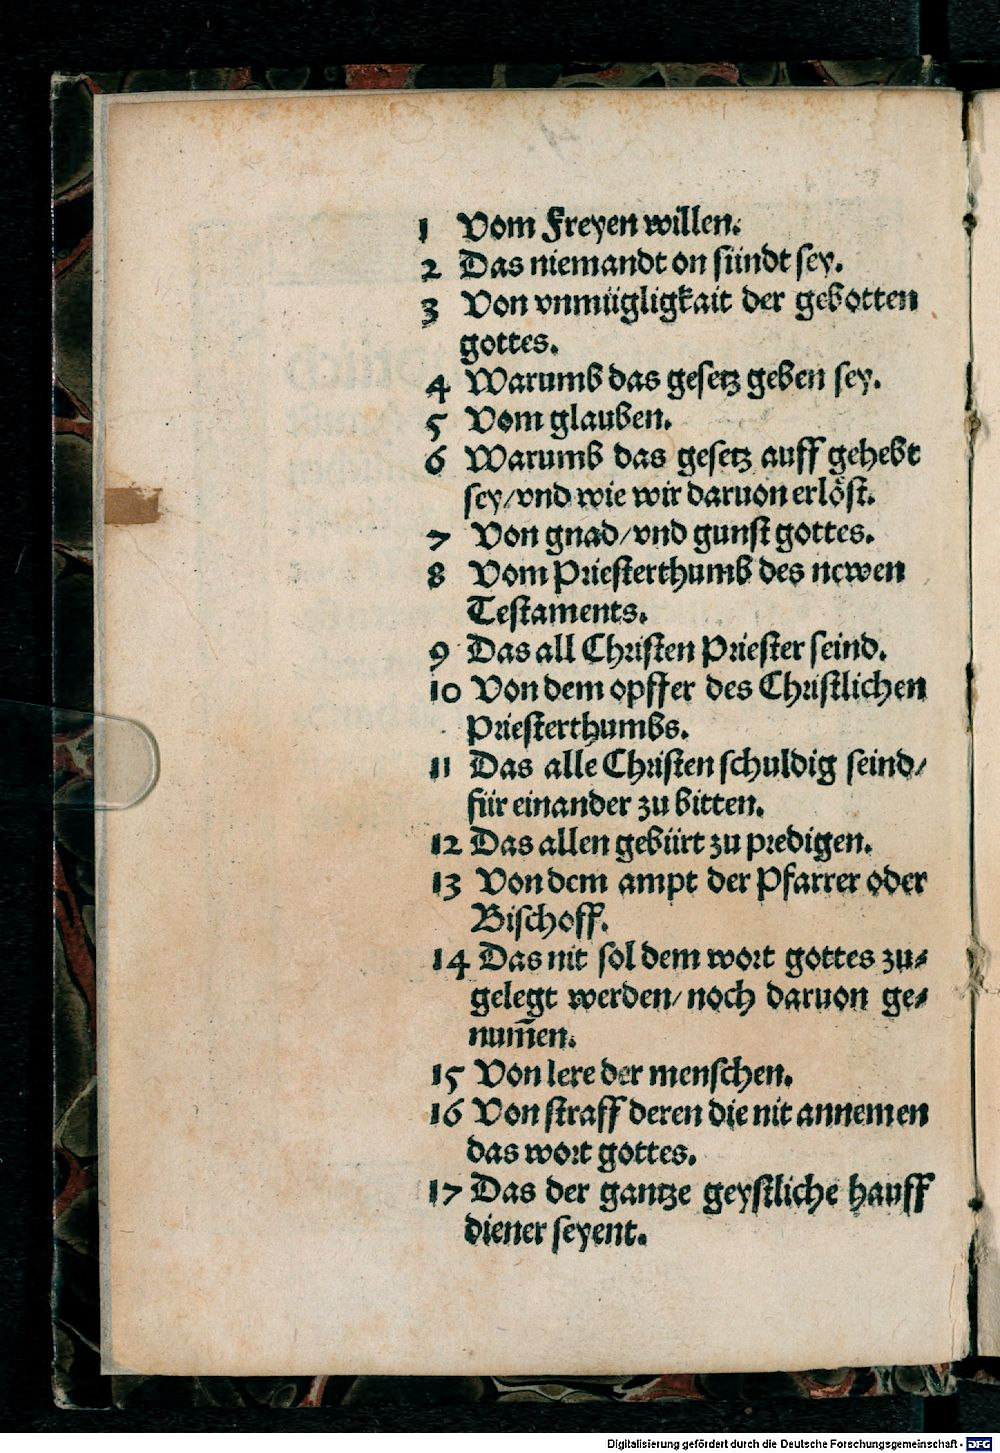 1 Vom Freyen willen.
2 Das niemandt on sündt sey.
3 Von vnmügligkait der gebotten
gottes.
4 Warumb das gesetz geben sey.
5 Vom glauben.
6 Warumb das gesetz auff gehebt
sey/vnd wie wir daruon erlöst.
7 Von gnad/vnd gunst gottes.
8 Vom Priesterthumb des newen
Testaments.
9 Das all Christen Priester seind.
10 Von dem opffer des Christlichen
Priesterthumbs.
11 Das alle Christen schuldig seind/
für einander zu bitten.
12 Das allen gebürt zu predigen.
13 Von dem ampt der Pfarrer oder
Bischoff.
14 Das nit sol dem wort gottes zu⸗
gelegt werden/noch daruon ge⸗
num̄en.
15 Von lere der menschen.
16 Von straff deren die nit annemen
das wort gottes.
17 Das der gantze geystliche hauff
diener seyent.
Digitalisierung gefördert durch die Deutsche Forschungsgemeinschaft - DFG